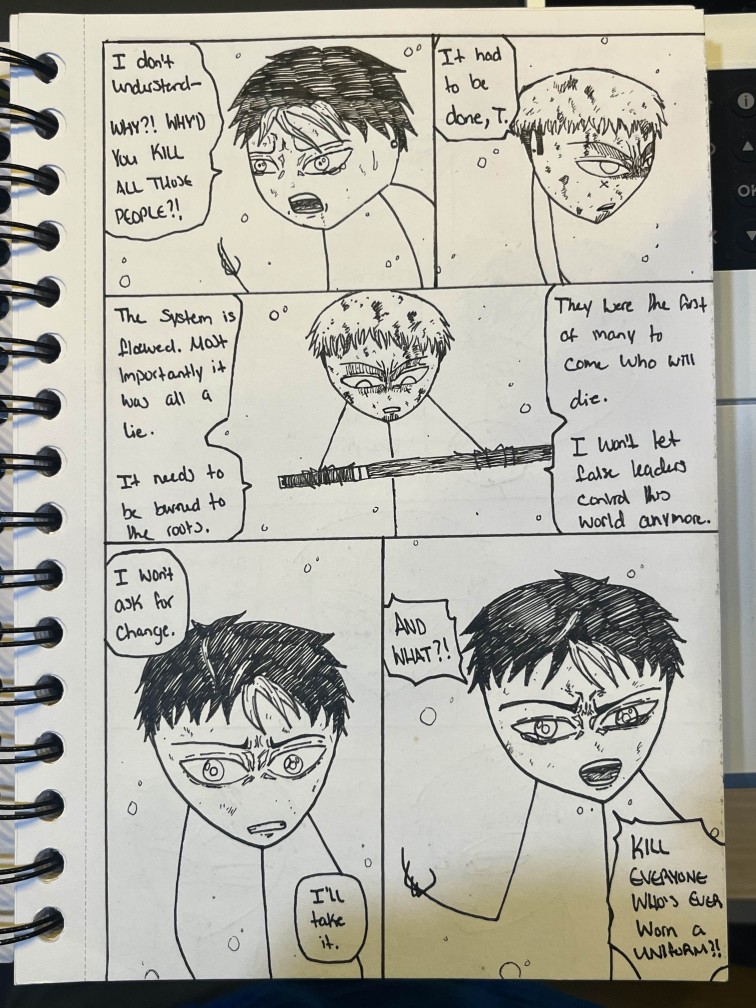 I don't
understand—
WHY?! WHY'D
YOU KILL
ALL THOSE
PEOPLE?!
It had
to be
done, T.
The System is
flawed. Most
importantly it
was all a
lie.
It needs to
be burned to
the roots.
They were the first
of many to
come who will
die.
I won't let
false leaders
control this
world anymore.
I won't
ask for
change.
I'll
take
it.
AND
WHAT?!
KILL
EVERYONE
WHO'S EVER
WORN a
UNIFORM?!